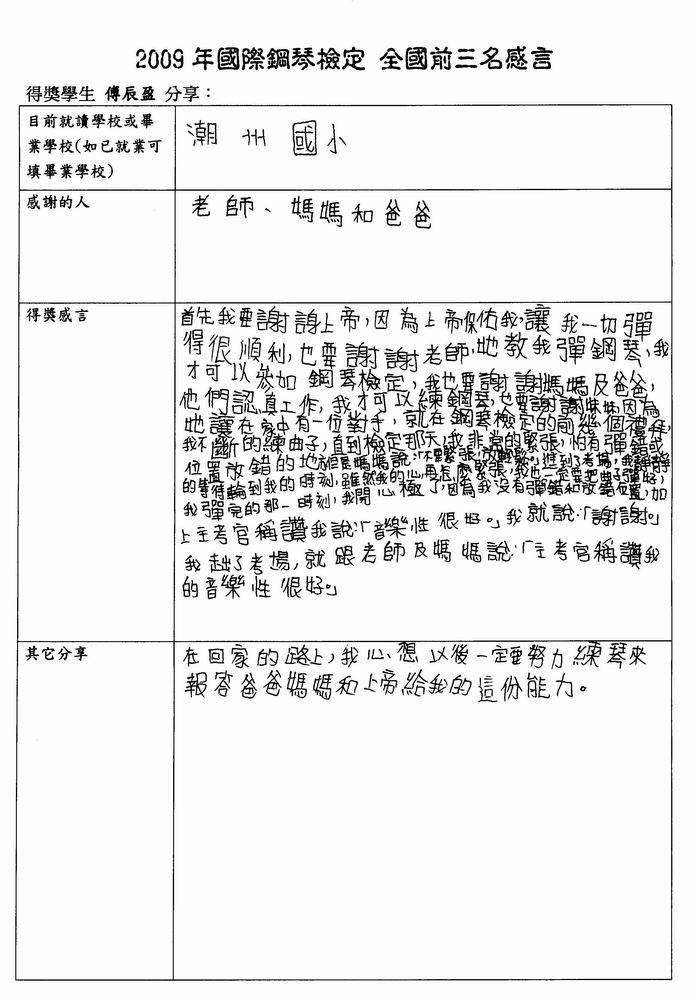 2009 年國際鋼琴檢定 全國前三名感言
得獎學生 傅辰盈 分享：
目前就讀學校或畢
業學校(如已就業可
填畢業學校)
潮州國小
感謝的人
老師、媽媽和爸爸
得獎感言
首先我要謝謝上帝,因為上帝保佑我,讓我一切彈
得很順利,也要謝謝老師,她教我彈鋼琴,我
才可以參加鋼琴檢定,我也要謝謝媽媽及爸爸,
他們認真工作,我才可以練鋼琴,也要謝謝妹妹,因為
她讓在家中有一位對手,就在鋼琴檢定的前幾個禮拜,
我不斷的練曲子,直到檢定那天,我非常的緊張,怕有彈錯或
位置放錯的地
的等待輪到我的時刻,雖然心
我彈完的那一時刻,我開心極了,因為我沒有彈錯和放錯位置,
上主考官稱讚我說:「音樂性很好。」我就說:「謝謝。」
我趉了考場,就跟老師及媽媽說:「主考官稱讚我
的音樂性很好。」
其它分享
在回家的路上,我心想以後一定要努力練琴來
報答爸爸媽媽和上帝給我的這份能力。